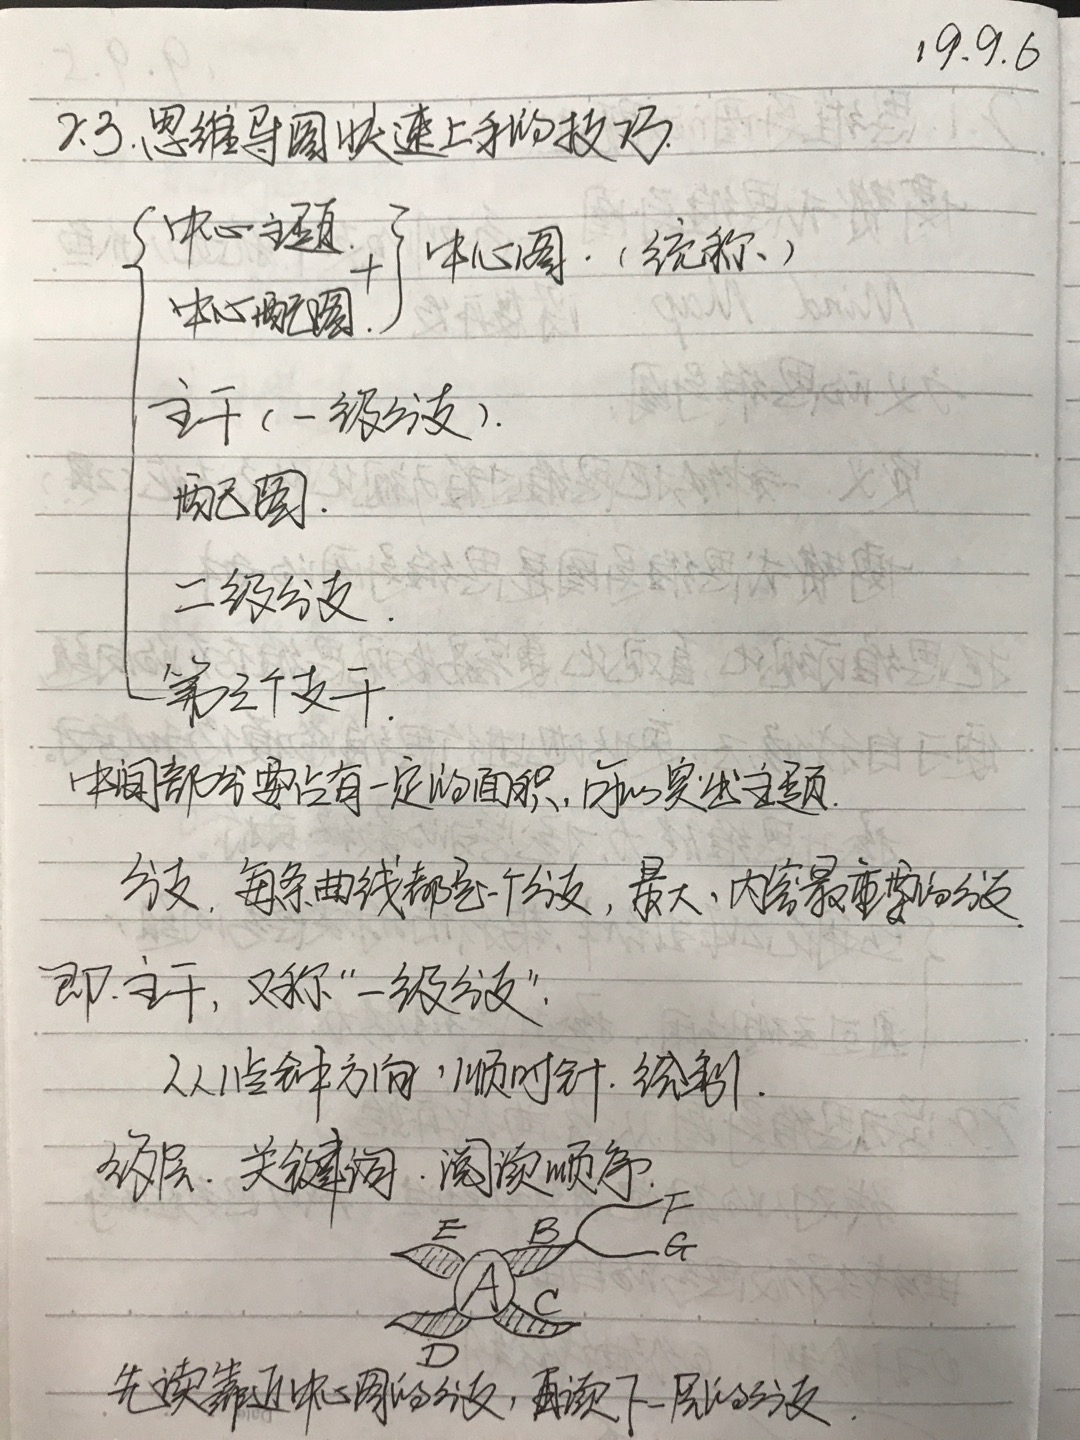 19.9.6
2.3.思维导图快速上手的技巧.
中心主题.
+
中心配图.
中心图.(统称、)
主干(一级分支).
配图.
二级分支.
第三个支干.
中间部分要占有一定的面积,可以突出主题.
分支.每条曲线都是一个分支,最大、内容最重要的分支
即.主干,又称“一级分支”.
从1点钟方向,顺时针.绘制.
层.关键词.阅读顺序.
E B F
G
A
C
D
先读靠近中心图的分支,再读下一层的分支.